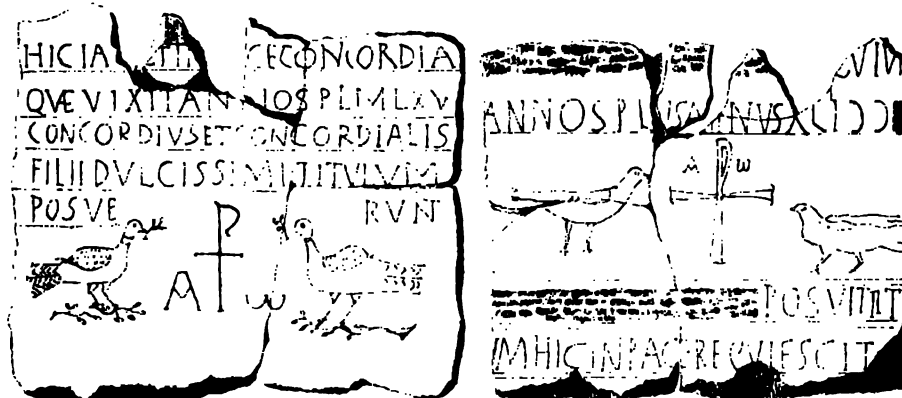 HIC IA CE CONCORDIA
QVE VIXIT ANNOS PLMLXV
CONCORDIVS ET CONCORDIALIS
FILII DVLCISSIMI TITVLVM
POSVE RVNT
A ω
ANNOS PLUS MINUS XL
A ω
POSVIT TIT
M HIC IN PAC REQVIESCIT